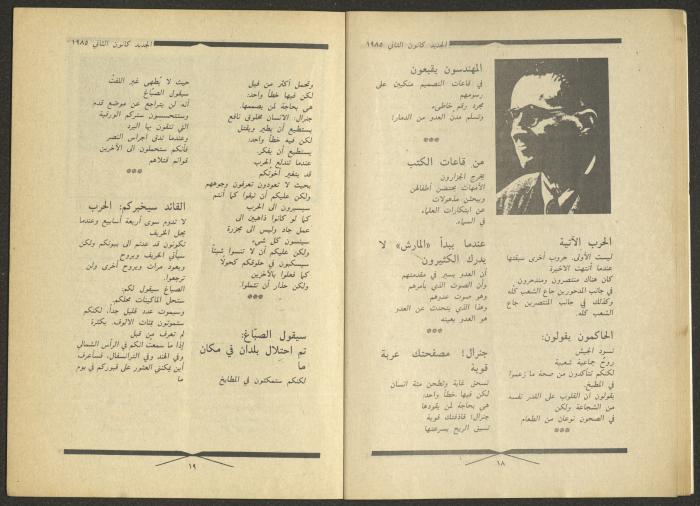 الجديد كانون الثاني ١٩٨٥
الحرب الآتية
ليست الأولى. حروب أخرى سبقتها
عندما أنتهت الأخيرة
كان هناك منتصرون ومندحرون
في جانب المدحورين جاع الشعب كله
وكذلك في جانب المنتصرين جاع
الشعب كله
الحاكمون يقولون:
تسود الجيش
روح جماعية شعبية
لكنكم تتأكدون من صحة ما زعموا
في المطبخ.
يقولون ان القلوب على القدر نفسه
من الشجاعة ولكن
في الصحون نوعان من الطعام
***
المهندسون يقبعون
في قاعات التصميم منكبين على
رسومهم
مجرد رقم خاطىء
وتسلم مدن العدو من الدمار!
***
من قاعات الكتب
يخرج الجزارون
الأمهات يحتضن أطفالهن
ويبحثن مذهولات
عن ابتكارات العلماء
في السماء.
عندما يبدأ «المارش» لا
يدرك الكثيرون
أن العدو يسير في مقدمتهم
وأن الصوت الذي يأمرهم
وهو صوت عدوهم
وهذا الذي يتحدث عن العدو
هو العدو بعينه
***
جنرال! مصفحتك عربة
قوية
تسحق غابة وتطحن مئة انسان
لكن فيها خطأ واحد:
هي بحاجة لمن يقودها
جنرال! قاذفتك قوية
تسبق الريح بسرعتها
١٨
الجديد كانون الثاني ١٩٨٥
وتحمل أكثر من فيل
لكن فيها خطأ واحد:
هي بحاجة لمن يصممها.
جنرال: الانسان مخلوق نافع
يستطيع أن يطير ويقتل
لكن فيه خطأ واحد:
يستطيع أن يفكر.
عندما تندلع الحرب
قد يتغير أخوتكم
بحيث لا تعودون تعرفون وجوههم
ولكن عليكم ان تبقوا كما أنتم
سيسيرون الى الحرب
كما لو كانوا ذاهبين الى
عمل جاد وليس الى مجزرة
سينسون كل شيء
ولكن عليكم أن لا تنسوا شيئاً
سيسكبون في حلوقكم كحولا
كما فعلوا بالآخرين
ولكن حذار أن تثملوا.
***
سيقول الصبّاغ:
تم احتلال بلدان في مكان
ما
لكنكم ستمكثون في المطابخ
حيث لا يُطهى غير اللفت
سيقول الصبّاغ
أنه لن يتراجع عن موضع قدم
وستتحسسون ستركم الورقية
التي تتقون بها البرد
وعندما تدق اجراس النصر
فأنكم ستحملون الى الآخرين
قوائم قتلاهم
***
القائد سيخبركم: الحرب
لا تدوم سوى أربعة أسابيع وعندما
يحل الخريف
تكونون قد عدتم الى بيوتكم ولكن
سيأتي الخريف ويروح
ويعود مرات ويروح أخرى ولن
ترجعوا.
الصباغ سيقول لكم:
ستحل الماكينات محلكم.
وسيموت عدد قليل جداً، لكنكم
ستموتون بمئات الالوف. بكثرة
لم تعرف من قبل
إذا ما سمعت انكم في الرأس الشمالي
وفي الهند وفي الترانسفال، فسأعرف
أين يمكنني العثور على قبوركم في يوم
ما
١٩